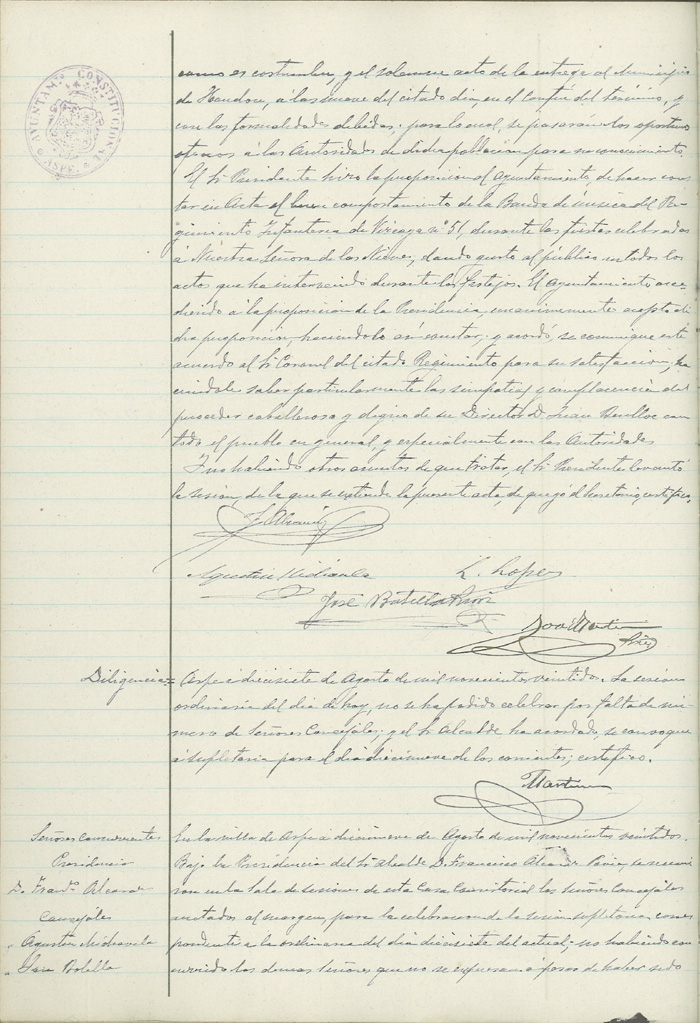 AYUNTAMTO CONSTITUCIONAL
ASPE
como es costumbre, y el solemne acto de la entrega al Municipio
de Hondon, á las nueve del citado dia, en el confin del término, y
con las formalidades debidas; para lo cual, se pasarán los oportunos
á las Autoridades de dicha poblacion para su conocimiento.
El Sr. Presidente hizo la proposicion al Ayuntamiento, de hacer cons-
tar en Acta el buen comportamiento de la Banda de música del Re-
gimiento Infanteria de Vizcaya nº 51, durante las fiestas celebradas
á Nuestra Señora de las Nieves, dando gusto al público en todos los
actos que ha intervenido durante los festejos. El Ayuntamiento acce-
diendo á la proposicion de la Presidencia, unanimemente acepta di-
cha proposicion, haciendolo así constar; y acordó, se comunique este
acuerdo al Sr. Coronel del citado Regimiento para su satisfaccion, ha-
ciendole saber particularmente las simpatias y complacencia del
proceder caballeroso y digno de su Director D. Juan con
todo el pueblo en general, y especialmente con las Autoridades.
Y no habiendo otros asuntos de que tratar, el Sr. Presidente levantó
la sesion, de la que se extiende la presente acta, de que yó el Secretario, certifico.
Agustin Midravela L. Lopez
José Botella
Martin
Diligencia = Aspe á diecisiete de Agosto de mil novecientos veintidos. La sesion
ordinaria del dia de hoy, no se ha podido celebrar por falta de nú-
mero de Señores Concejales; y el Sr. Alcalde ha acordado, se convoque
á supletoria para el dia diecinueve de los corrientes; certifico.
Martin
Señores concurrentes
Presidencia
D. Frandº Alcaraz
Concejales
" Agustin Midravela
" José Botella
En la villa de Aspe á diecinueve de Agosto de mil novecientos veintidos.
Bajo la Presidencia del Sr. Alcalde D. Francisco Alcaraz Pavia, se reunie-
ron en la Sala de sesiones de esta Casa Consistorial los Señores Concejales
anotados al margen, para la celebracion de la sesion supletoria corres-
pondiente a la ordinaria del dia diecisiete del actual; no habiendo con-
currido los demas Señores que no se expresan á pesar de haber sido